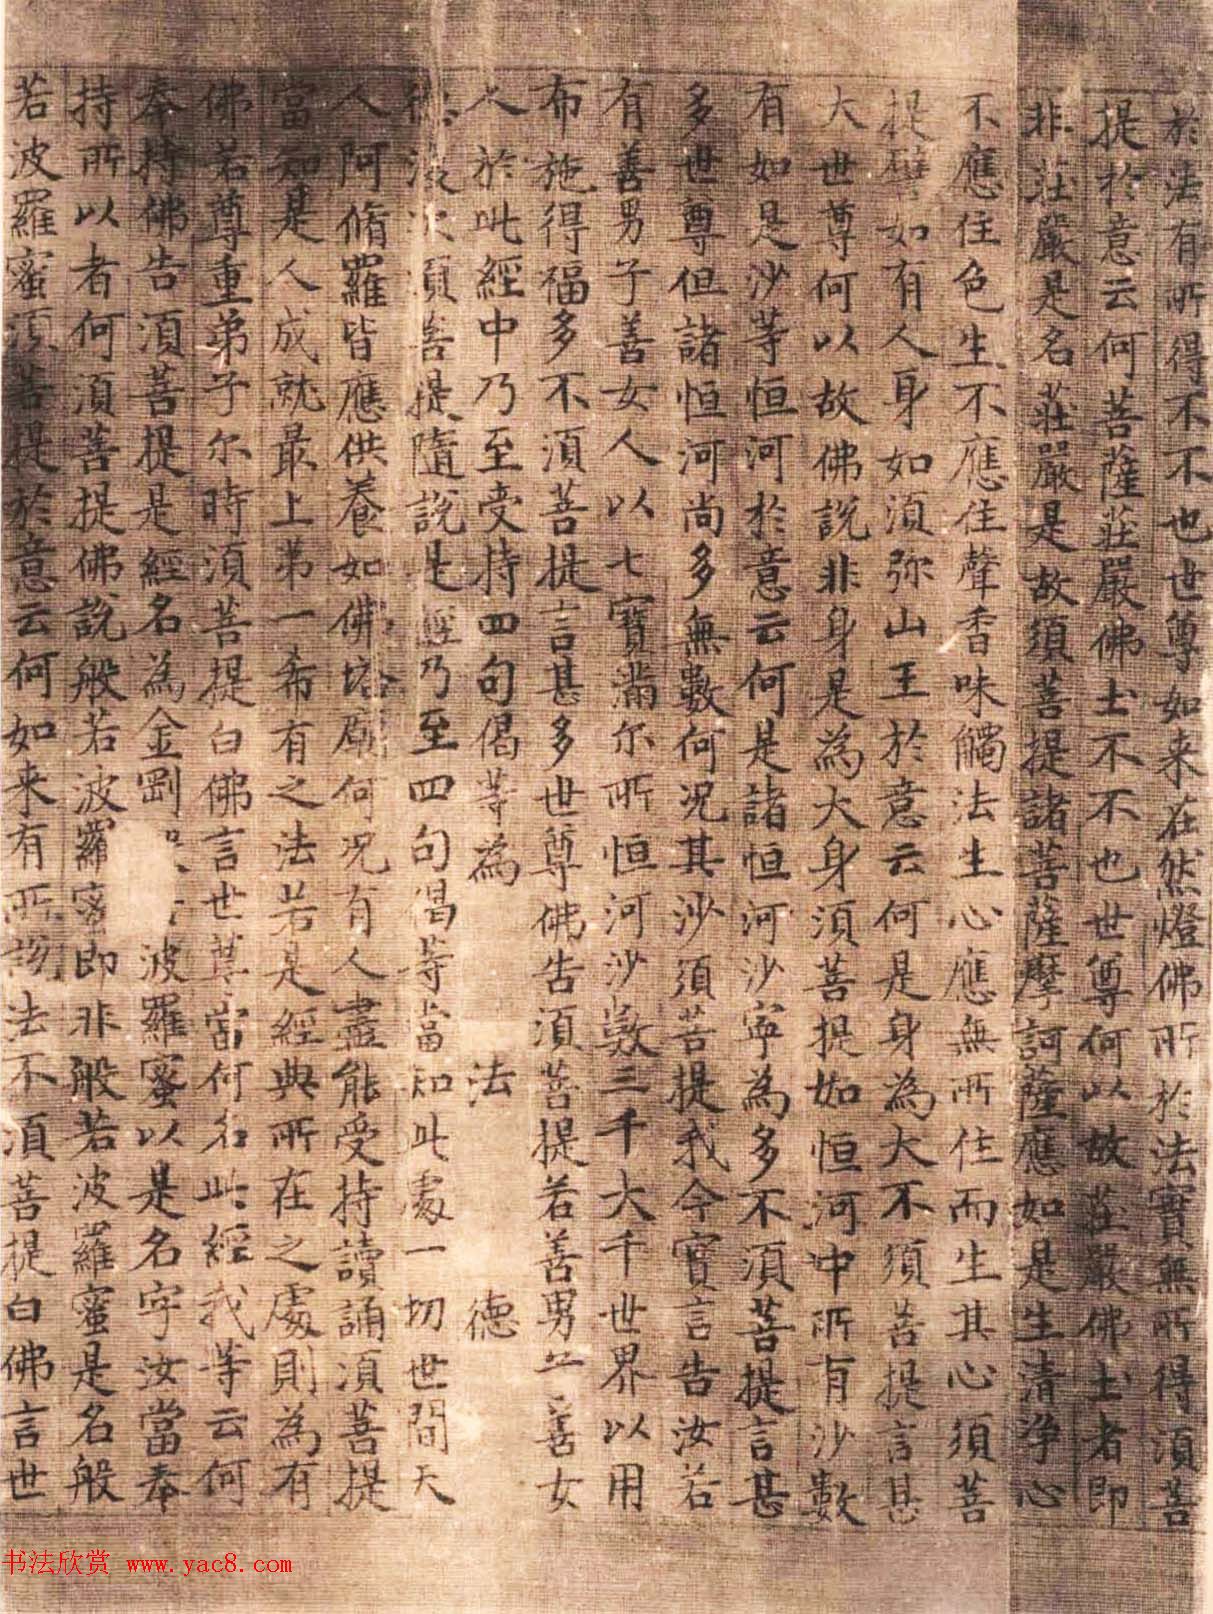 於法有所得不不也世尊如来在然燈佛所於法實無所得須菩
提於意云何菩薩莊嚴佛土不不也世尊何以故莊嚴佛土者即
非莊嚴是名莊嚴是故須菩提諸菩薩摩訶薩應如是生清净心
不應住色生不應住聲香味觸法生心應無所住而生其心須菩
提譬如有人身如須弥山王於意云何是身為大不須菩提言甚
大世尊何以故佛說非身是為大身須菩提如恒河中所有沙數
有如是沙等恒河於意云何是諸恒河沙寧為多不須菩提言甚
多世尊但諸恒河尚多無數何况其沙須菩提我今實言告汝若
有善男子善女人以七寶滿尔所恒河沙數三千大千世界以用
布施得福多不須菩提言甚多世尊佛告須菩提若善男子善女
人於此經中乃至受持四句偈等為 法 德
德復次須菩提隨說是經乃至四句偈等當知此處一切世間天
人阿脩羅皆應供養如佛塔廟何况有人盡能受持讀誦須菩提
當知是人成就最上弟一希有之法若是經典所在之處則為有
佛若尊重弟子尔時須菩提白佛言世尊當何名此經我等云何
奉持佛告須菩提是經名為金剛 波羅蜜以是名字汝當奉
持所以者何須菩提佛說般若波羅蜜即非般若波羅蜜是名般
若波羅蜜須菩提於意云何如来有所說法不須菩提白佛言世
书法欣赏 www.yac8.com